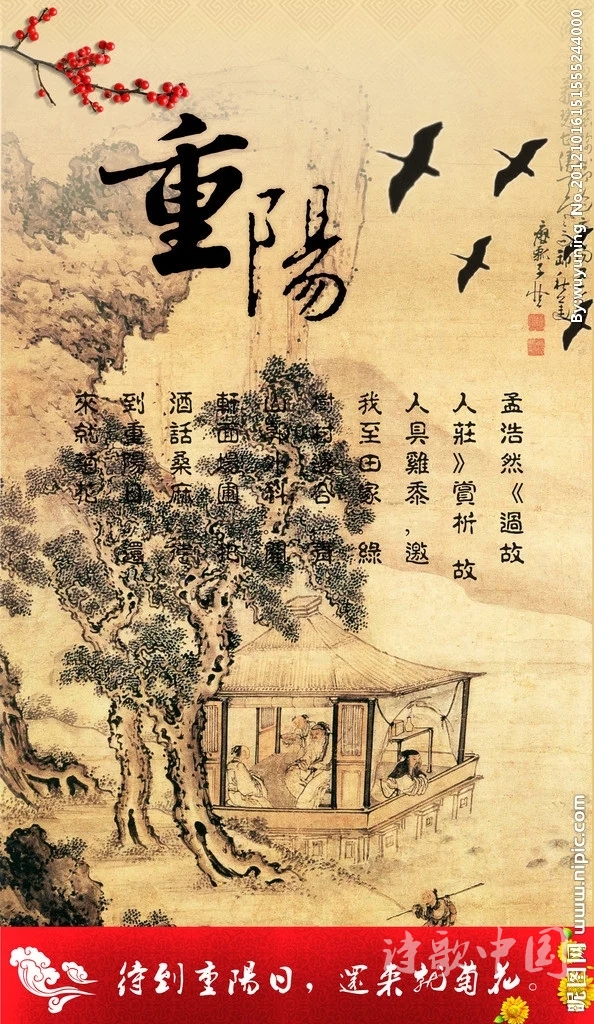 重陽
孟浩然《過故
人莊》賞析 故
人具雞黍,邀
我至田家 綠
樹村邊合 青
山郭外斜 開
軒面場圃 把
酒話桑麻 待
到重陽日 還
來就菊花
待到重陽日,還来就菊花。
诗歌中国
昵图网 www.nipic.com
By:wuyuning No.20121016151555244000